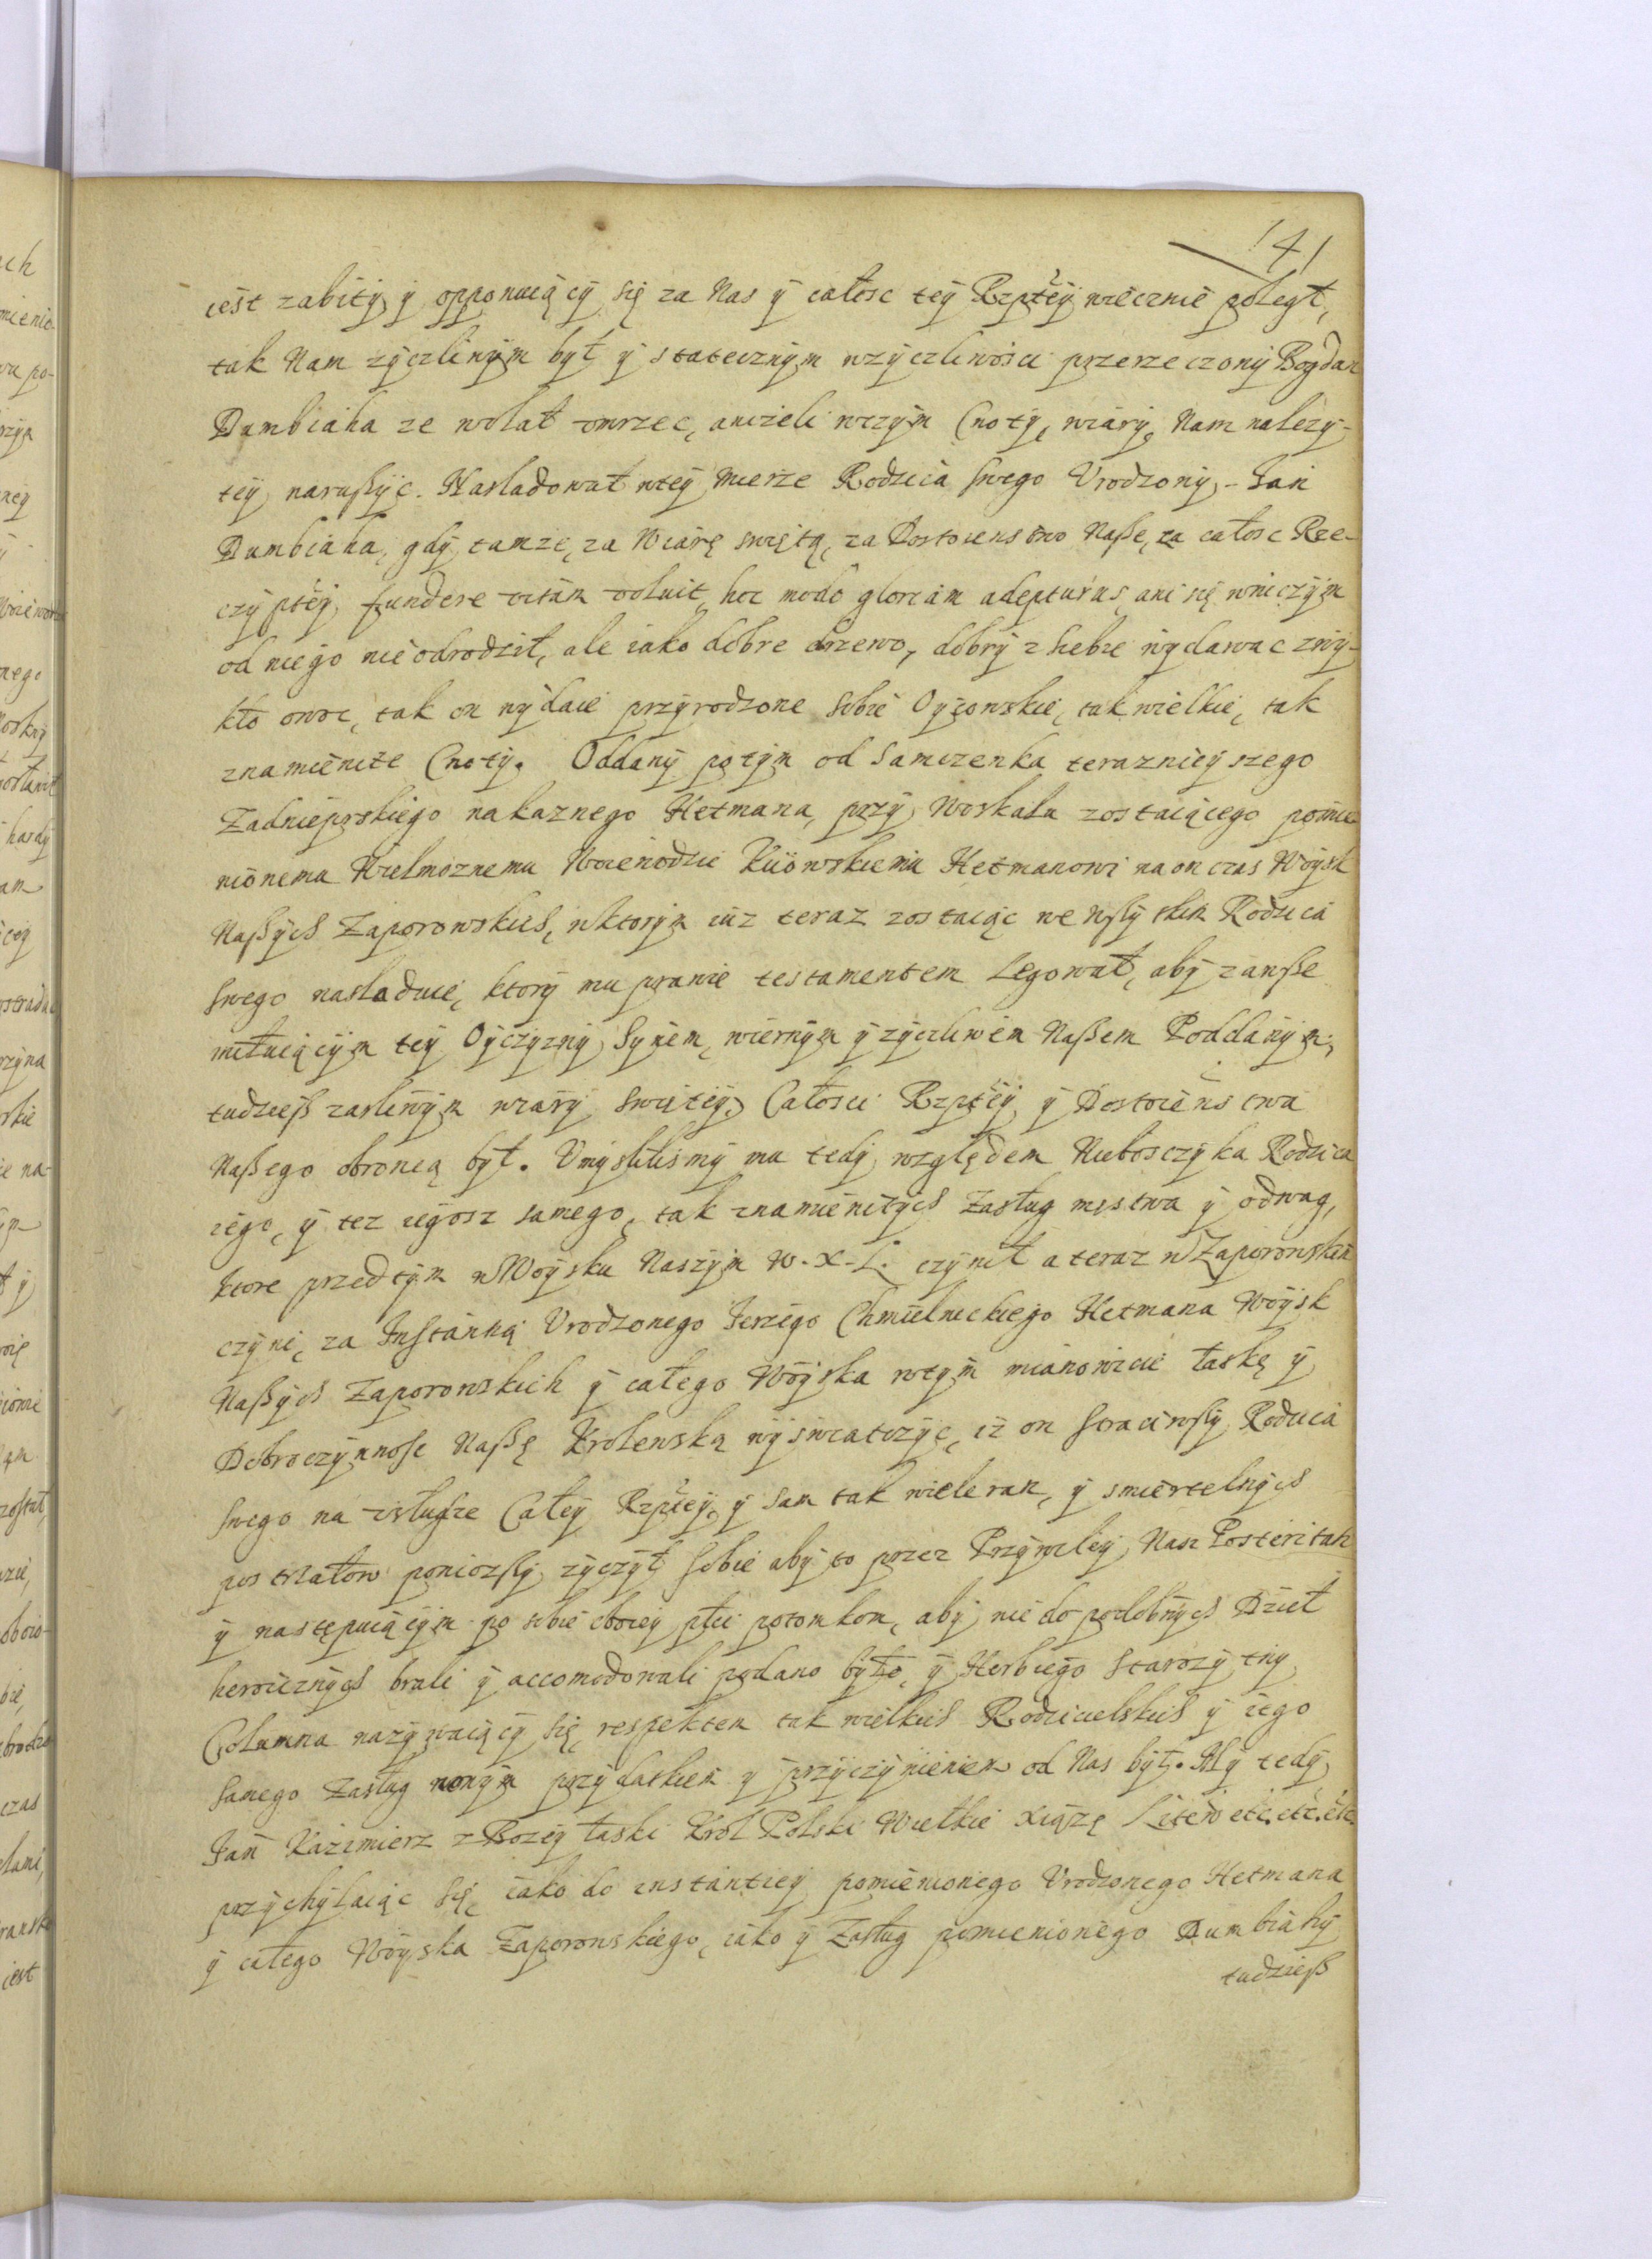 141
iest zabity y opponuiący się za Nas y całosc tey Rzpłey wiecznie poległ,
tak Nam zyczliwym był y statecznym wzyczliwosci przerzeczony Bogdan
Dumbiaha ze wolał vmrzec, anizeli wczym Cnoty, wiary, Nam nalezy-
tey, narußyc. Nasladował wtey mierze Rodzica swego Vrodzony - Jan
Dumbiaha, gdy tamze, za Wiarę swiętą, za Dostoienstwo Naße, za całosc Rze-
czyptey, fundere vitam voluit, hoc modo gloriam adepturus, ani się wniczym
od niego nieodrodził, ale iako dobre drzewo, dobry z siebie wydawac zwy-
kło owoc, tak on wydaie przyrodzone sobie Oycowskie, tak wielkie, tak
znamienite Cnoty. Oddany potym od Samczenka teraznieyszego
Zadnieprskiego nakaznego Hetmana, przy Moskalu zostaiącego pomie
nionemu Wielmoznemu Woiewodzie Kiiowskiemu Hetmanowi na on czas Woysk
Naßych Zaporowskich, wktorym iuz teraz zostaiąc we wßytkim Rodzica
swego nasladuie, ktory mu prawie testamentem Legował, aby zawße
miłuiącym tey Oyczyzny Synem, wiernym y zyczliwem Naßem Poddanym,
tudzieß zarliwym wiary swiętey, Całosci Rzpłey y Dostoienstwa
Naßego obroncą był. Vmyslilismy mu tedy względem Nieboszczyka Rodzica
iego, y tez iegosz samego, tak znamienitych Zasług męstwa y odwag,
ktore przedtym w Woysku Naszym W. X. L. czynił a teraz w Zaporowskim
czyni, za Instantią Vrodzonego Jerzego Chmielnickiego Hetmana Woysk
Naßych Zaporowskich y całego Woyska wtym mianowicie łaskę y
Dobroczynnosc Naßę Krolewską wyswiatczyc, iz on straciwßy Rodzica
swego na vsłudze Całey Rzpłey, y sam tak wiele ran, y smiertelnych
postrzałow poniozßy zyczył sobie aby to przez Przywiley Nasz Posteritati
y następuiącym po sobie oboiey płci potomkom, aby się do podobnych Dzieł
heroicznych brali y accomodowali podano było, y Herb iego Starozytny
Columna nazywaiący się, respektem tak wielkich Rodzicielskich y iego
samego Zasług nowym przydatkiem y przyczynieniem od Nas był. My tedy
Jan Kazimierz z Bozey łaski Krol Polski Wielkie Xiąze Litew etc. etc. etc.
przychylaiąc się, iako do instantiey pomienionego Vrodzonego Hetmana
y całego Woyska Zaporowskiego, iako y Zasług pomienionego Dumbiahy
tudzieß